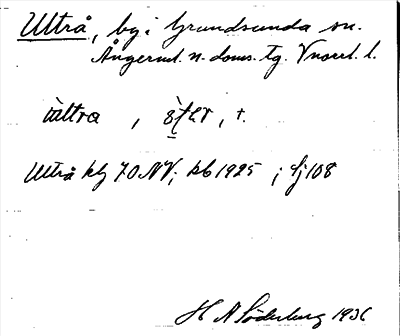 Ultrå, by i Grundsunda sn.
Ångerml. n. doms. tg. Vnorrl. l.
ùltra,
Ultrå kbg 70 NV; kb 1925; sj 108
H N Söderberg 1936